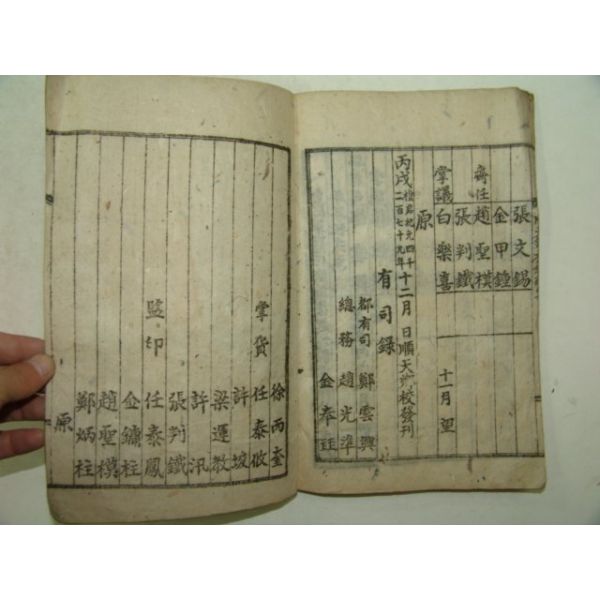 張文錫
金甲鍾
齊任趙聖模
張判鐵
掌議白樂喜 十一月望
原
丙戌檀君紀元四千二百七十九年十二月 日順天鄕校發刊
有司錄
都有司 鄭雲興
總務 趙光準
金奉鈺
徐丙奎
掌貨 任泰攸
許坡
梁運敎
許汛
張判鐵
監印 任泰鳳
金鏞柱
趙聖模
鄭炳柱
原